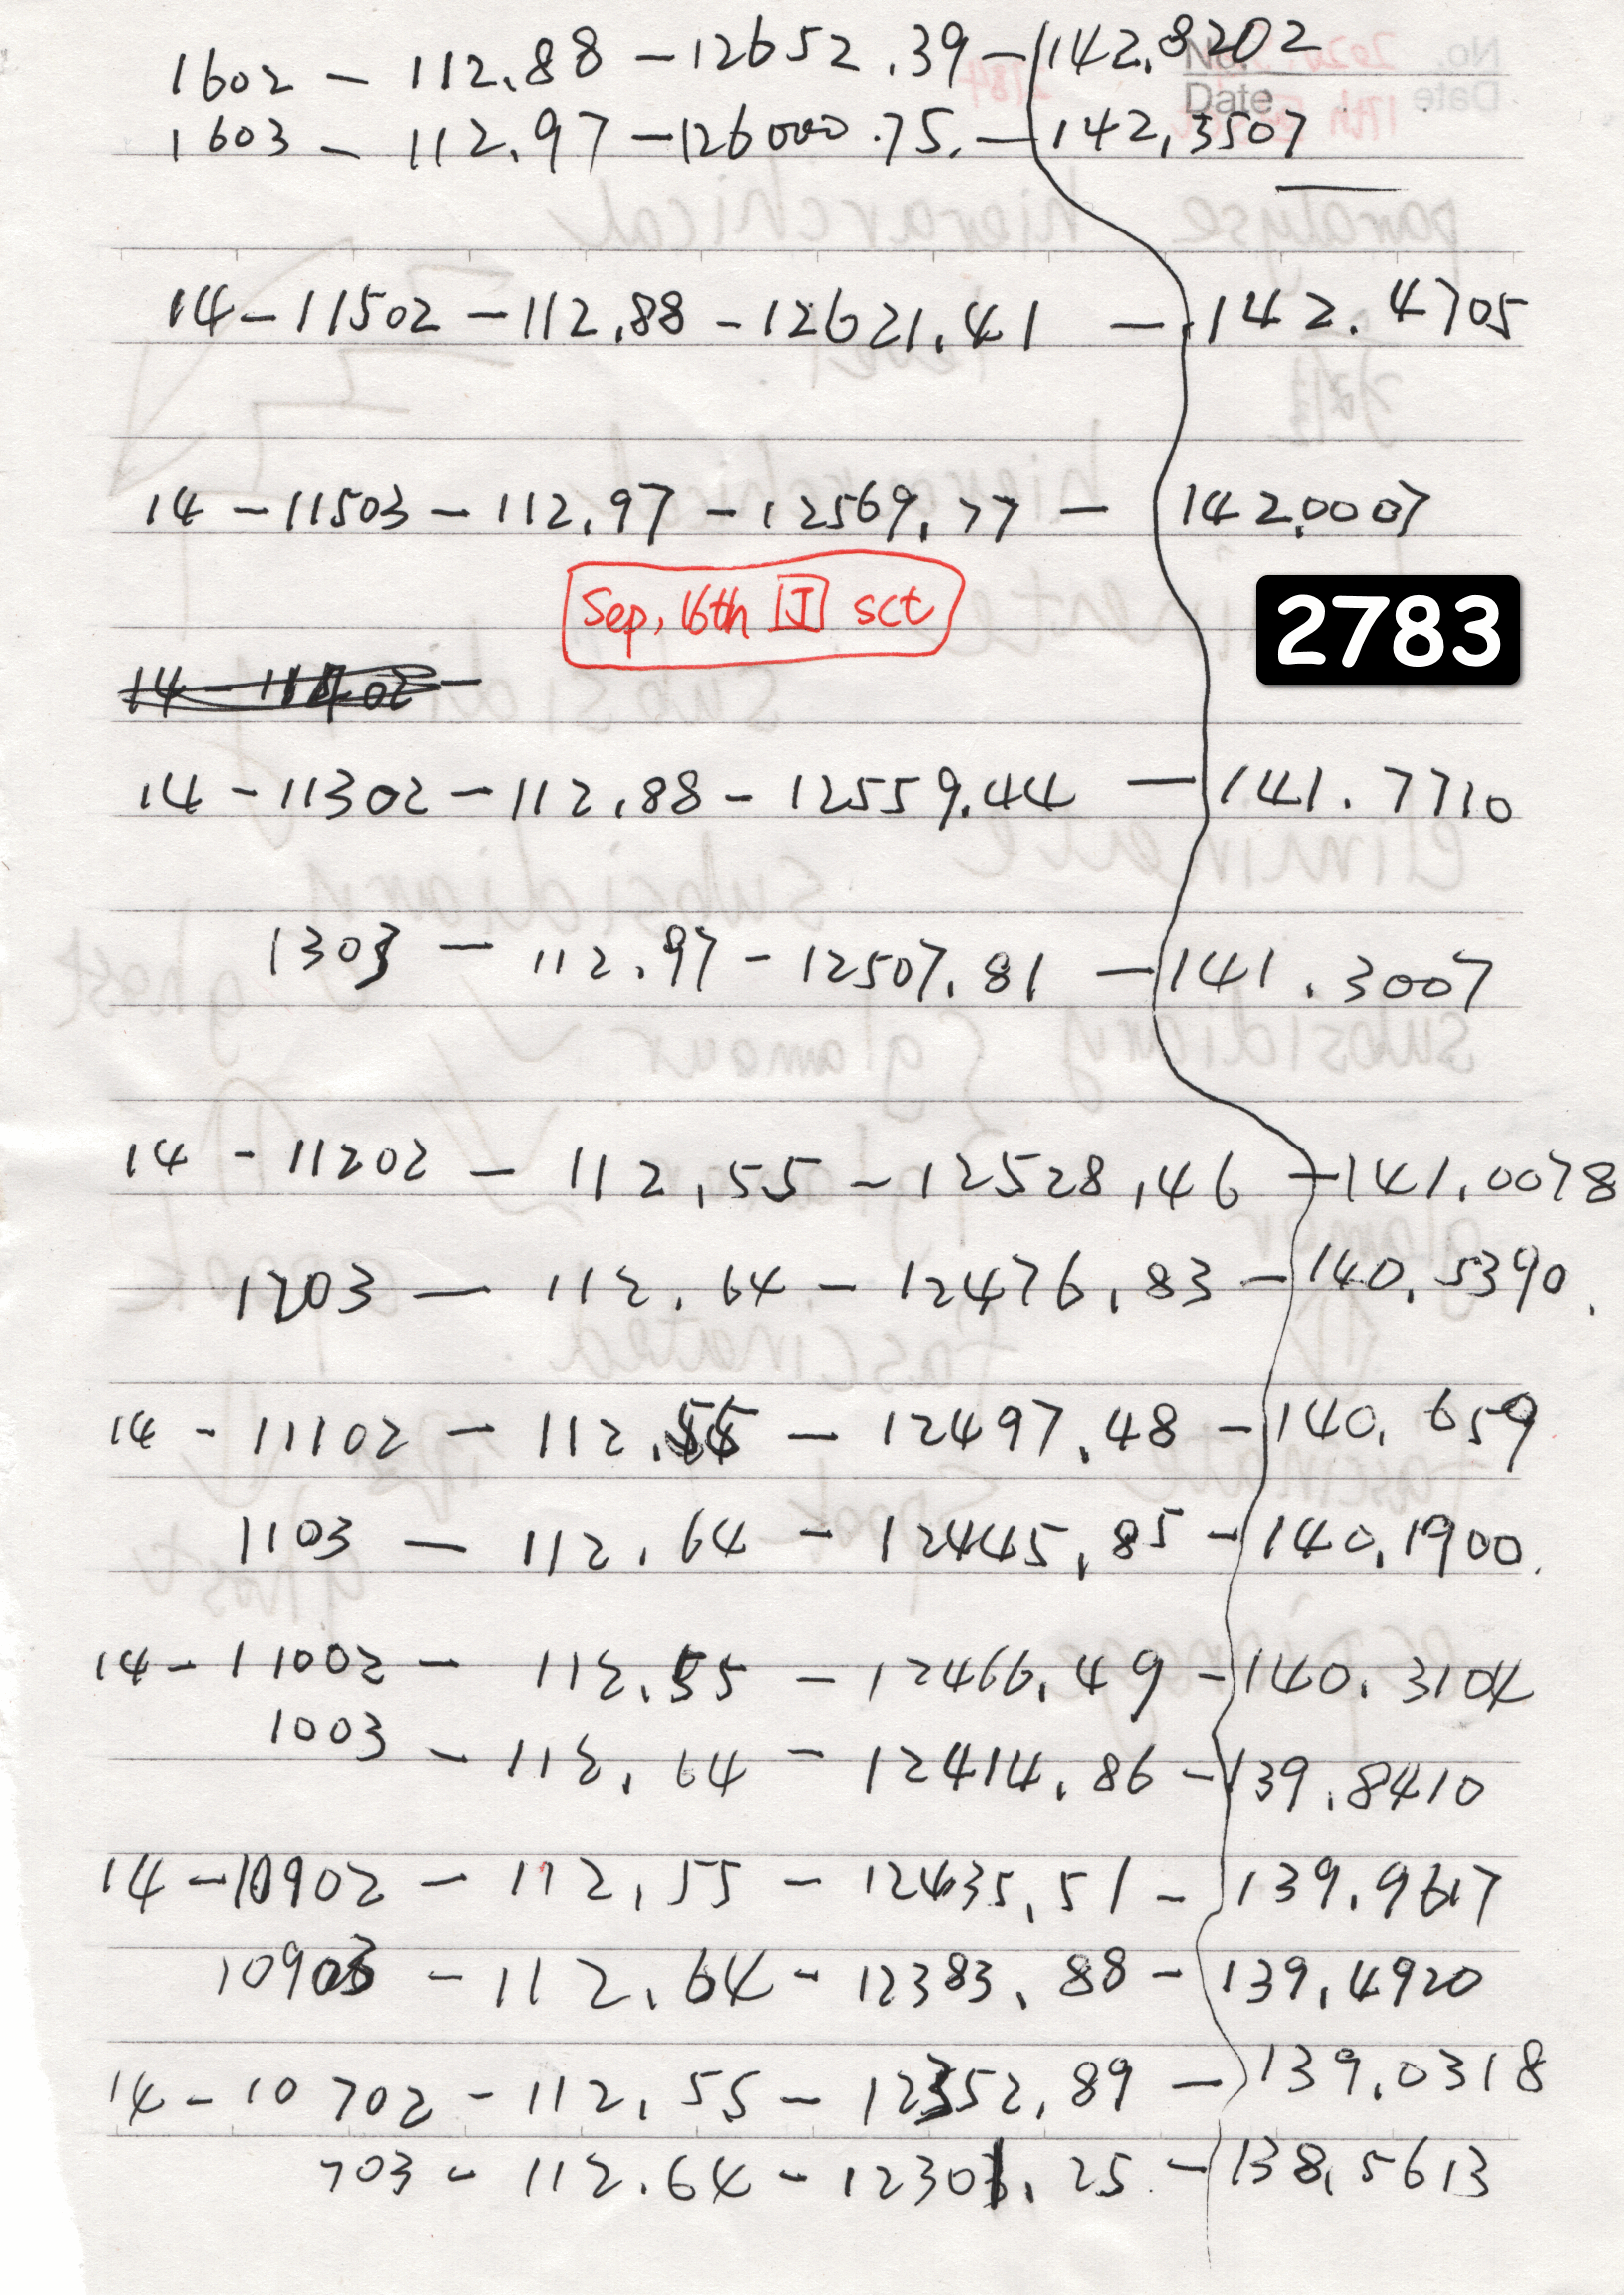 1602 - 112.88 - 12652.39 - 142.8202
No.
Date
1603 - 112.97 - 126000.75. - 142.3507
14 - 11502 - 112.88 - 12621.41 - 142.4705
14 - 11503 - 112.97 - 12569.77 - 142.0007
Sep, 16th J sct
2783
14 - 11302 - 112.88 - 12559.44 - 141.7710
1303 - 112.97 - 12507.81 - 141.3007
14 - 11202 - 112.55 - 12528.46 - 141.0078
1203 - 112.64 - 12476.83 - 140.5390.
14 - 11102 - 112.55 - 12497.48 - 140.659
1103 - 112.64 - 12445.85 - 140.1900.
14 - 11002 - 112.55 - 12466.49 - 140.3104
1003 - 112.64 - 12414.86 - 139.8410
14 - 10902 - 112.55 - 12435.51 - 139.9617
10903 - 112.64 - 12383.88 - 139.4920
14 - 10702 - 112.55 - 12352.89 - 139.0318
703 - 112.64 - 12301.25 - 138.5613